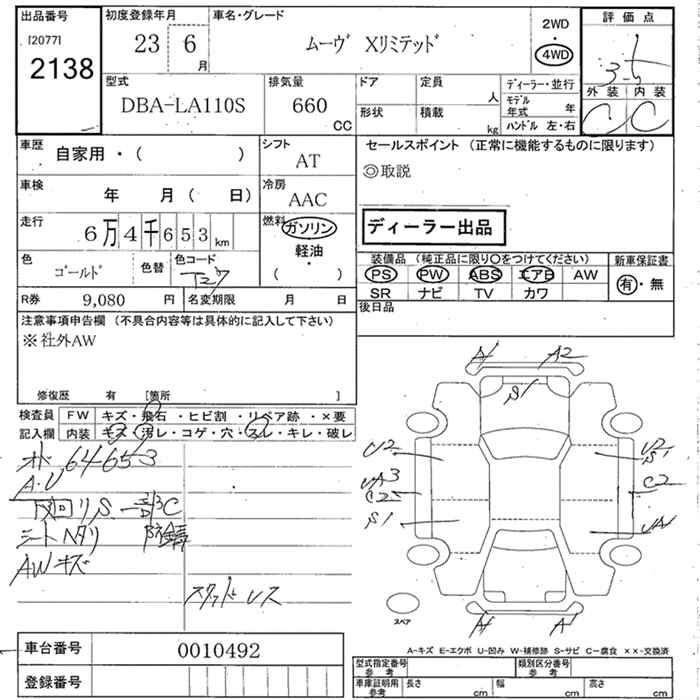 出品番号 初度登録年月 車名・グレード 評価点
[2077] 2138 23 6 月 ムーヴ Xリミテッド 2WD ・ 4WD 3.5
型式 排気量 ドア 定員 ディーラー・並行 外装 内装
DBA-LA110S 660 CC 人 モデル年式 年 C C
形状 積載 kg ハンドル 左・右
車歴 自家用・( ) シフト AT セールスポイント (正常に機能するものに限ります)
◎取説
車検 年 月 ( 日) 冷房 AAC
走行 6万4千653km 燃料 ガソリン ディーラー出品
軽油
( ・ )
色 ゴールド 色替 色コード 装備品 (純正品に限り○をつけてください) 新車保証書
PS PW ABS エアB AW 有・無
R券 9,080 円 名変期限 月 日 SR ナビ TV カワ
注意事項申告欄 (不具合内容等は具体的に記入して下さい) 後日品
※社外AW
修復歴 有 [箇所 ]
検査員 FW キズ・飛石・ヒビ割・リペア跡・×要
記入欄 内装 キズ・汚レ・コゲ・穴・スレ・キレ・破レ
A A2
S1
64653
A・U
U2 U2
S1
UA3 C2
C2
S1 UA
シートヘタリ 防錆
AWキズ
スタッドレス
A A
スペア
A−キズ E−エクボ U−凹み W−補修跡 S−サビ C−腐食 ××−交換済
車台番号 0010492
型式指定番号 参考 類別区分番号 参考
登録番号
車庫証明用 参考 長さ cm 幅 cm 高さ cm